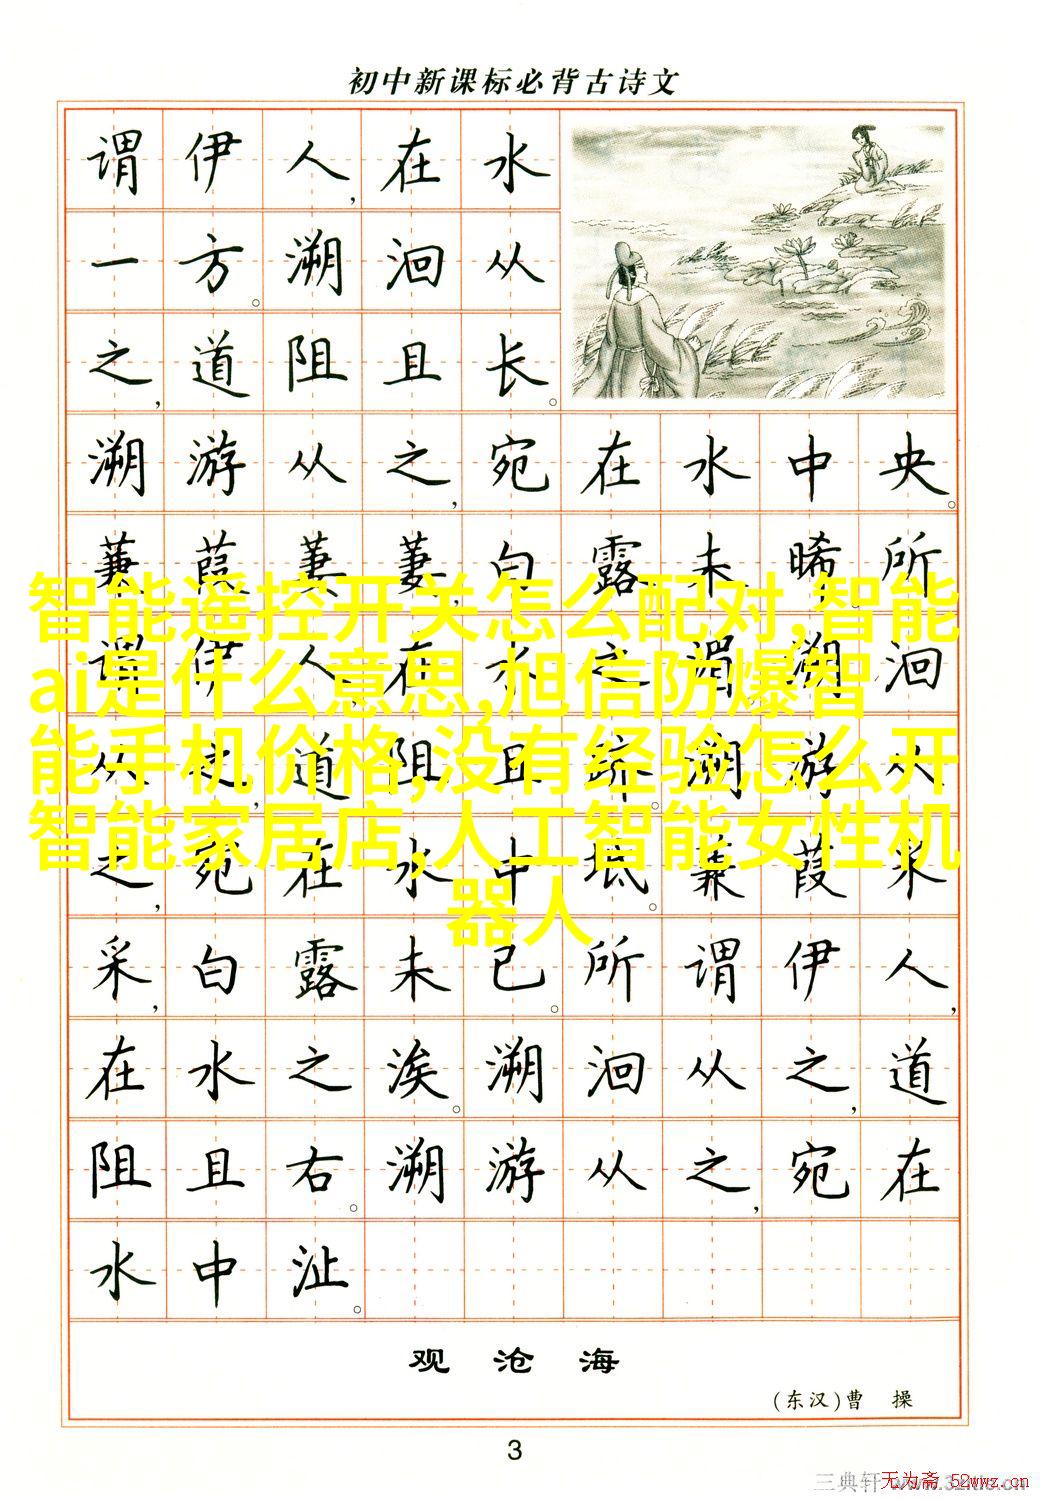 初中新课标必背古诗文
谓伊人,在水
一方。溯洄从
之,道阻且长。
溯游从之,宛在水中央。
蒹葭萋萋,白露未晞。所
谓伊人,在水之湄。溯洄
从之,道阻且跻。溯游从
之,宛在水中坻。蒹葭采
采,白露未已。所谓伊人,
在水之涘。溯洄从之,道
阻且右。溯游从之,宛在
水中沚。
智能遥控开关怎么配对,智能
ai是什么意思,旭信防爆智
能手机价格,没有经验怎么开
智能家居店,人工智能女性机
器人
观沧海
(东汉)曹 操
3
三典轩
无为斋 52wwz.cn